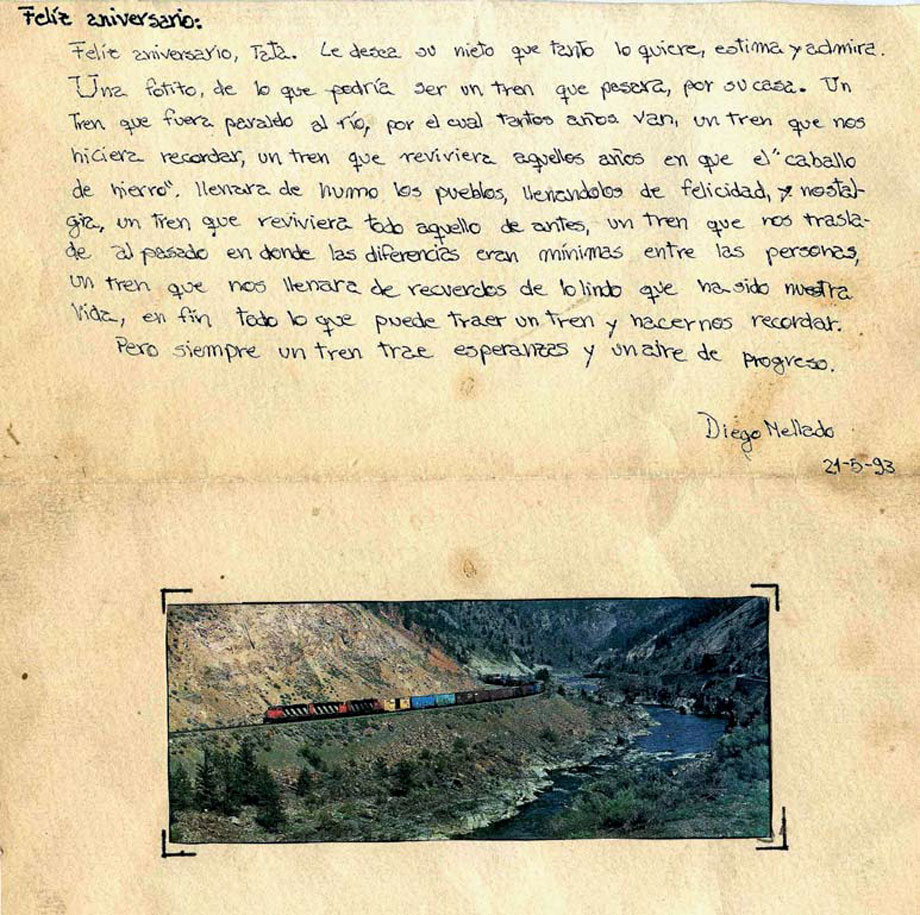 Feliz aniversario:
Feliz aniversario, Tata. Le desea su nieto que tanto lo quiere, estima y admira.
Una fotito, de lo que podría ser un tren que pasara, por su casa. Un
Tren que fuera paraldo al río, por el cual tantos años van, un tren que nos
hiciera recordar, un tren que reviviera aquellos años en que el "caballo
de hierro". llenara de humo los pueblos, llenandolos de felicidad, y nostal-
gia, un tren que reviviera todo aquello de antes, un tren que nos trasla-
de al pasado en donde las diferencias eran mínimas entre las personas,
un tren que nos llenara de recuerdos de lo lindo que ha sido nuestra
vida, en fin todo lo que puede traer un tren y hacernos recordar.
Pero siempre un tren trae esperanzas y un aire de progreso.
Diego Mellado
21-5-93